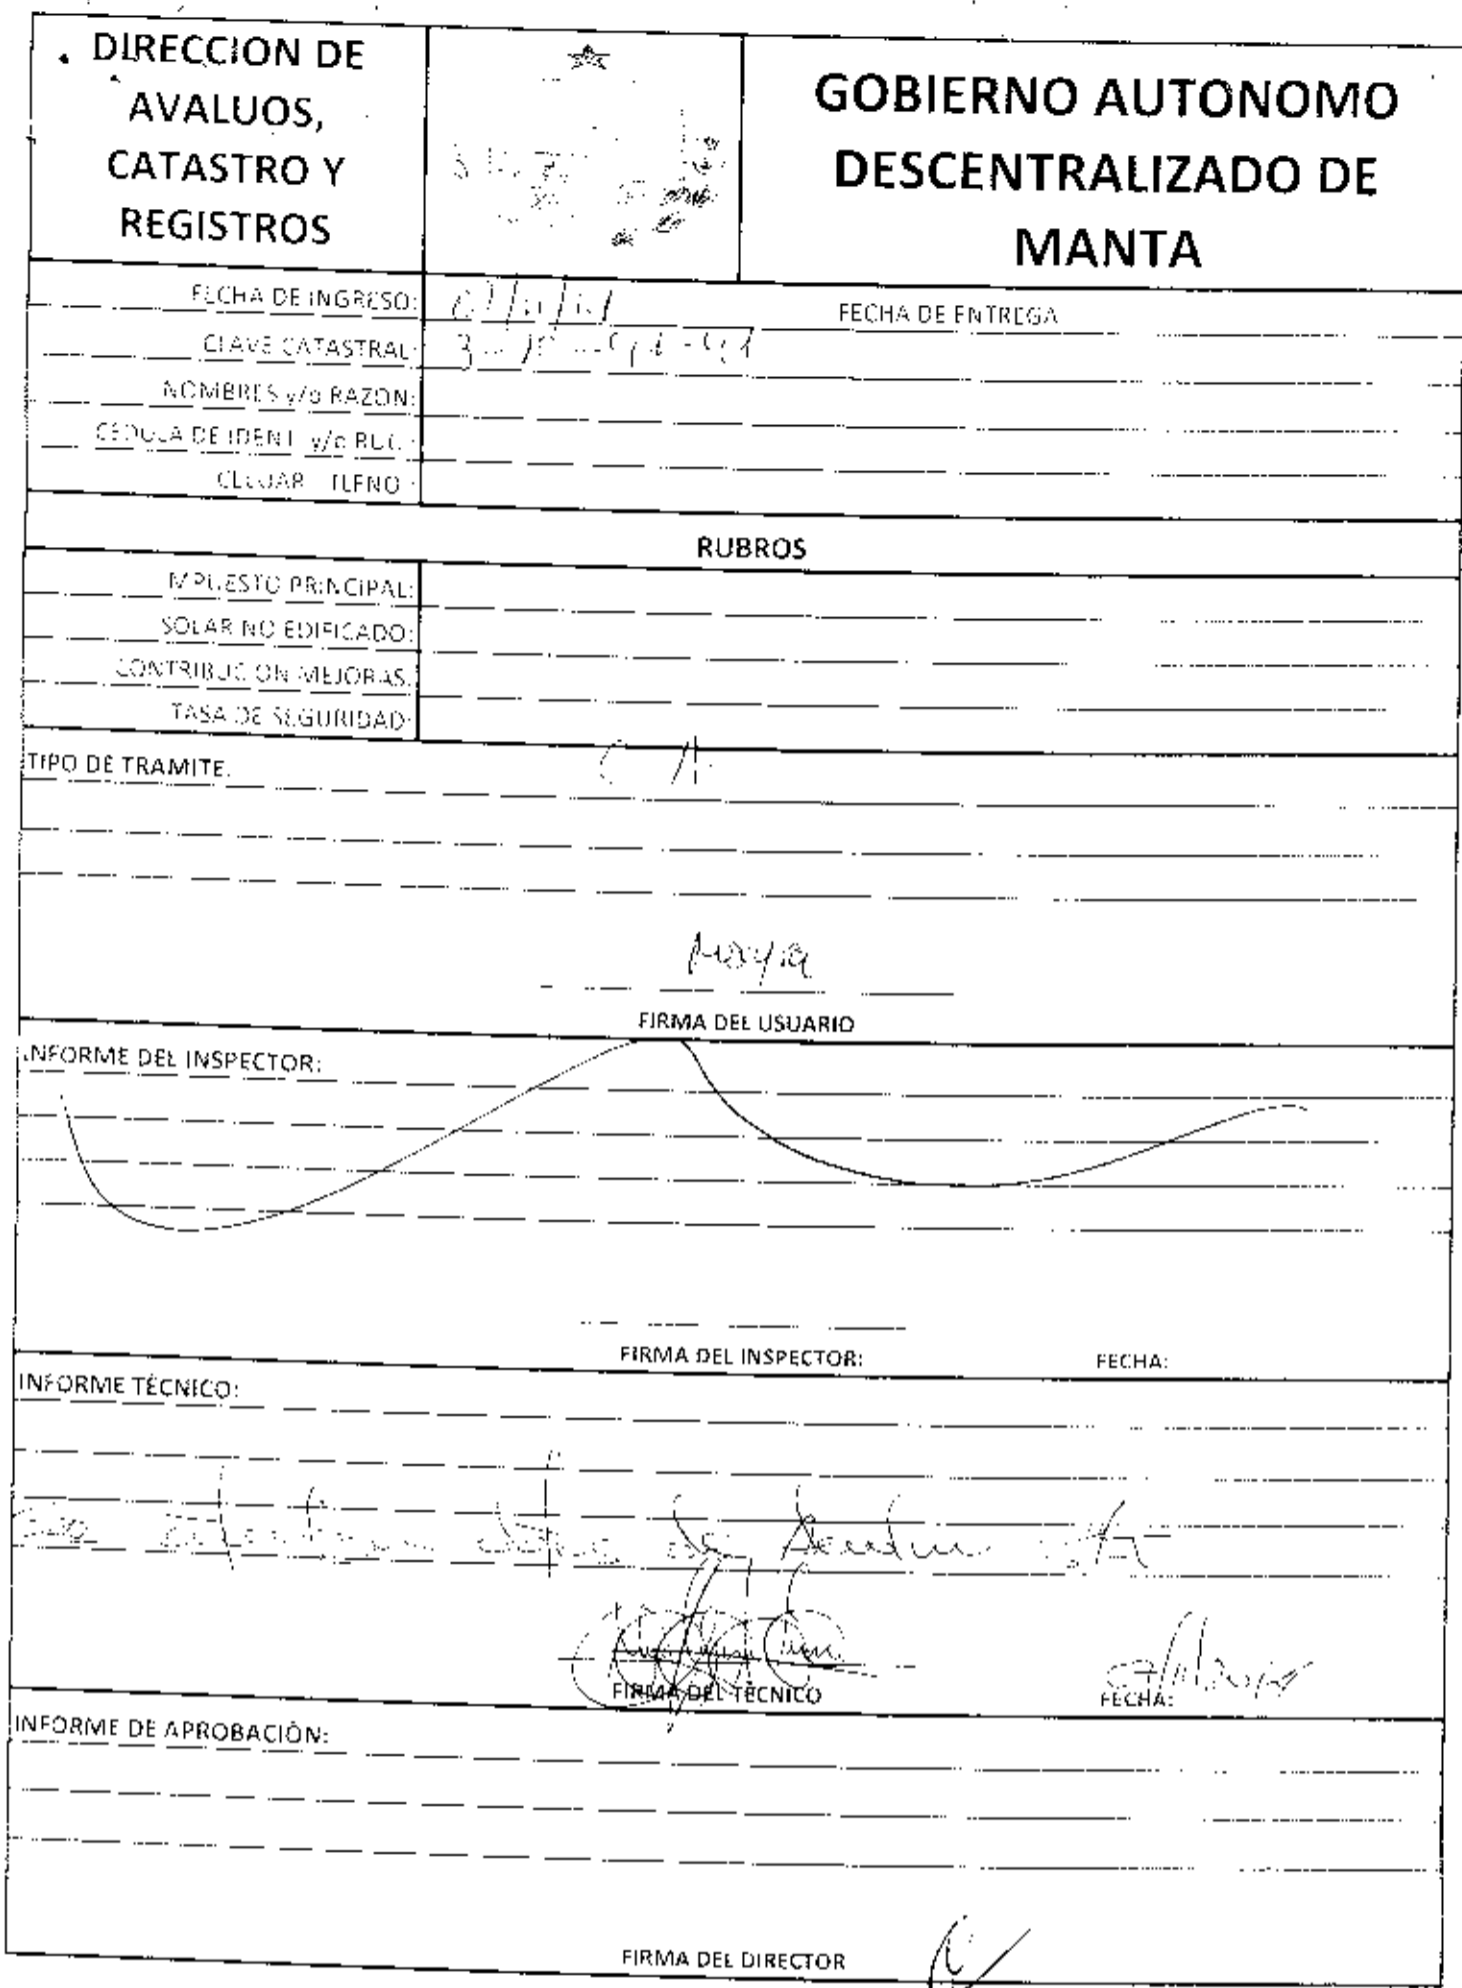 DIRECCION DE
AVALUOS,
CATASTRO Y
REGISTROS
GOBIERNO AUTONOMO
DESCENTRALIZADO DE
MANTA
FECHA DE INGRESO:
FECHA DE ENTREGA
CLAVE CATASTRAL:
NOMBRES y/o RAZON:
CEDULA DE IDENT. y/o RUC.:
CELUAR - TLFNO.:
RUBROS
IMPUESTO PRINCIPAL:
SOLAR NO EDIFICADO:
CONTRIBUCION MEJORAS:
TASA DE SEGURIDAD:
TIPO DE TRAMITE:
FIRMA DEL USUARIO
INFORME DEL INSPECTOR:
FIRMA DEL INSPECTOR: FECHA:
INFORME TÉCNICO:
FIRMA DEL TECNICO FECHA:
INFORME DE APROBACIÓN:
FIRMA DEL DIRECTOR